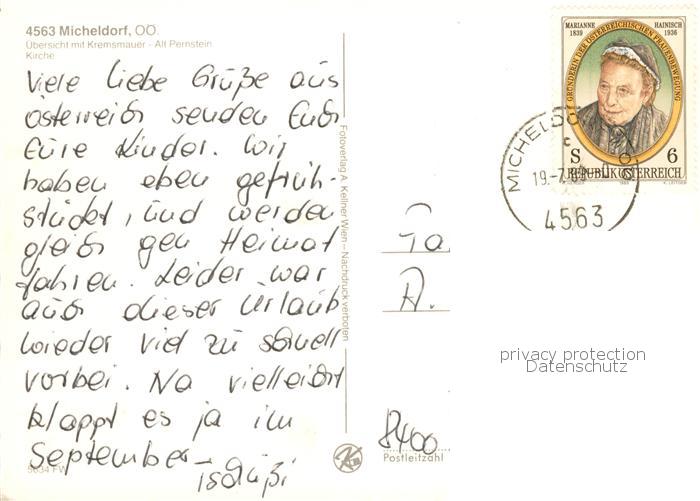 4563 Micheldorf, OÖ.
Übersicht mit Kremsmauer - Alt Pernstein
Kirche
Viele liebe Grüße aus
Österreich senden Euch
Eure Kinder. Wir
haben eben gefrüh-
stückt, und werden
gleich gen Heimat
fahren. Leider war
auch dieser Urlaub
wieder viel zu schnell
vorbei. Na vielleicht
klappt es ja im
September
Tschüßi
5634 FW
Fotoverlag A. Kellner Wien - Nachdruck verboten
MARIANNE HAINISCH
1839 1936
GRÜNDERIN DER ÖSTERREICHISCHEN FRAUENBEWEGUNG
S 6
REPUBLIK ÖSTERREICH
1989 K. LEITGEB
MICHELDO
19.-7.
4563
Fa
A.
privacy protection
Datenschutz
8400
Postleitzahl